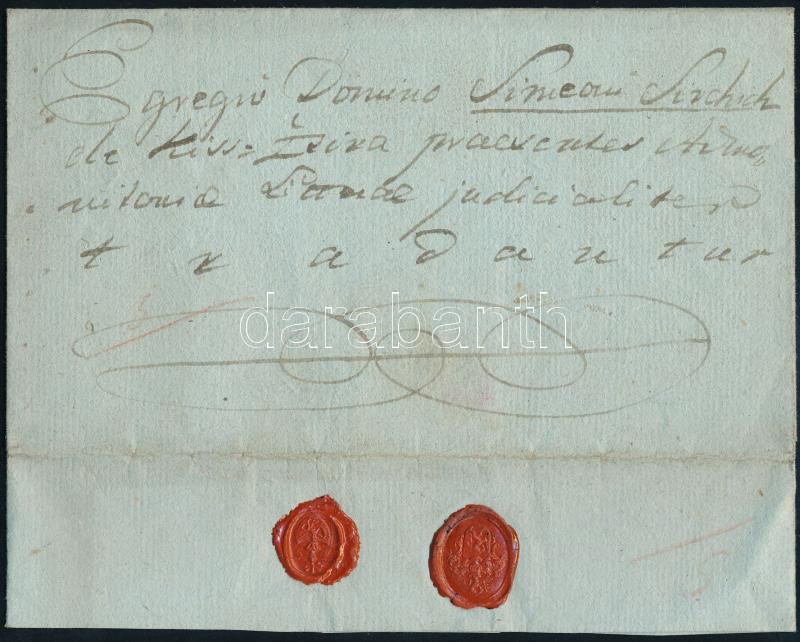 Egregio Domino Simeoni Sirchich
de Kiss=Zsira praesentes Admo
nitoriae judicialiter
tradantur
darabanth